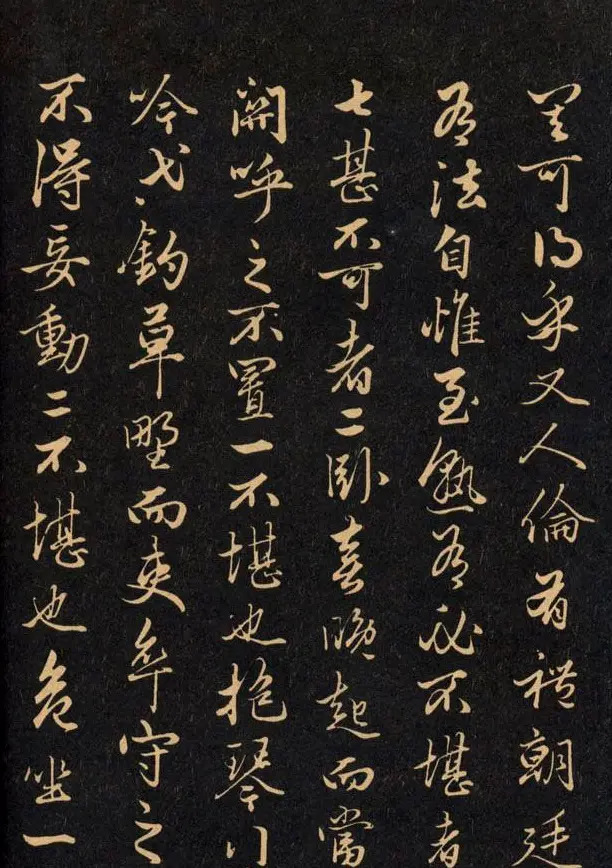 其可得乎又人倫有禮朝廷
有法自惟至熟有必不堪者
七甚不可者二卧喜晚起而當
關呼之不置一不堪也抱琴行
吟弋釣草野而吏卒守之
不得妄動二不堪也危坐一